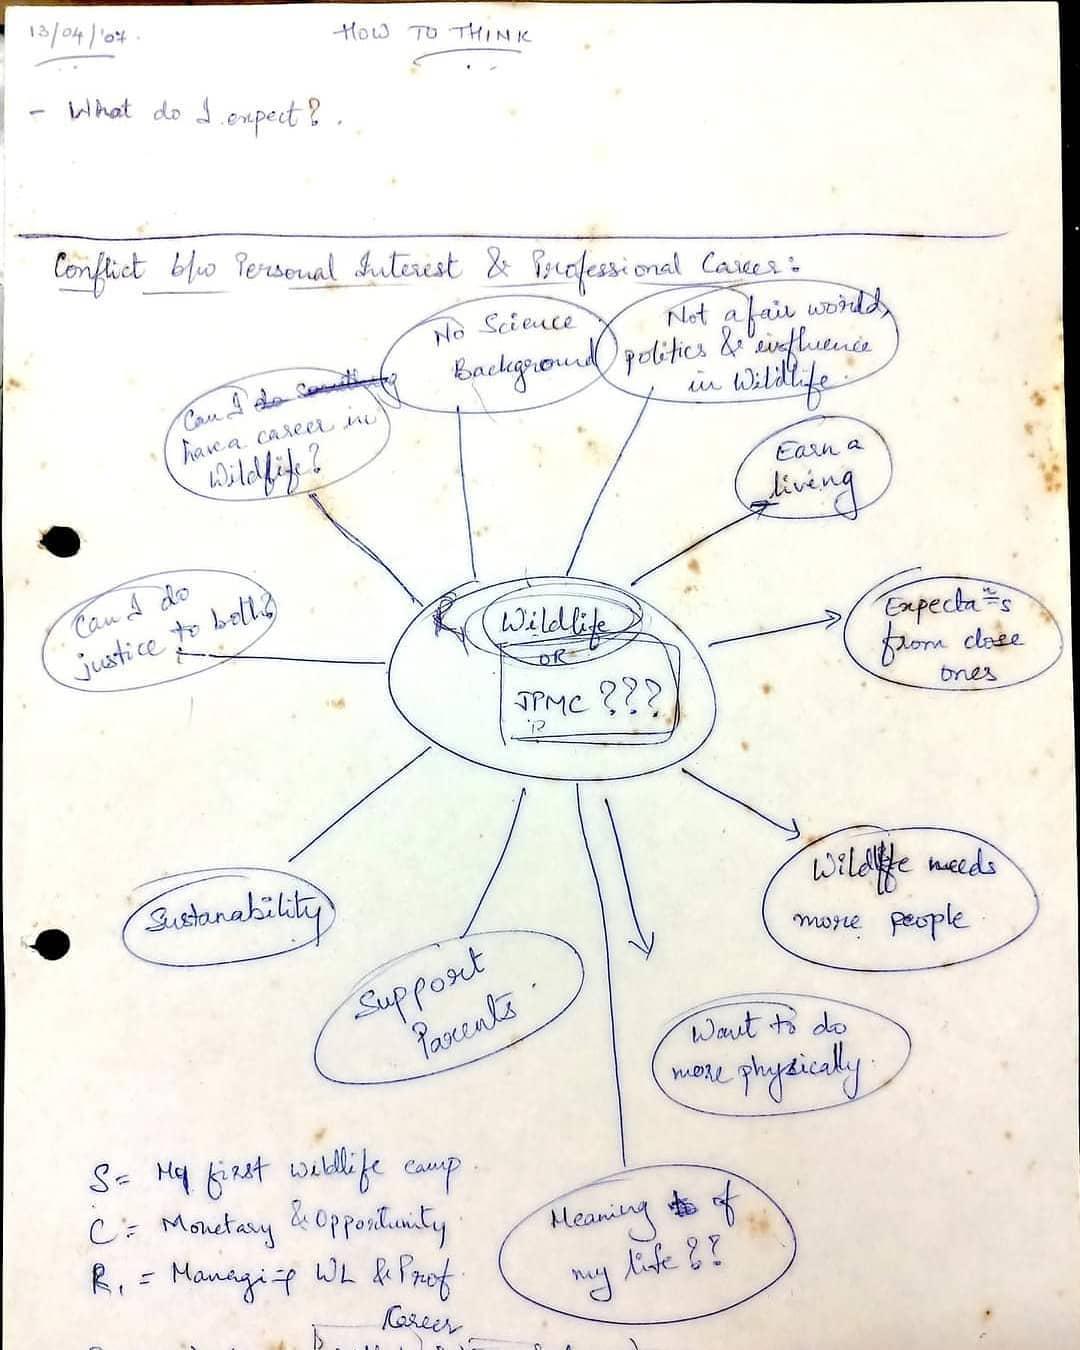 13/04/'07.
HOW TO THINK
- What do I expect?.
Conflict b/w Personal Interest & Professional Career:
No Science
Background
Not a fair world,
politics & influence
in Wildlife.
Can I do something
have a career in
Wildlife?
Earn a
living
Can I do
justice to both?
R1
Wildlife
OR
JPMC ???
Expecta=ns
from close
ones
Sustanability
Support
Parents.
Wildlife needs
more people
Want to do
more physically.
Meaning of
my life??
S = My first wildlife camp.
C = Monetary & Opportunity
R1 = Managi=g WL & Prof.
Career